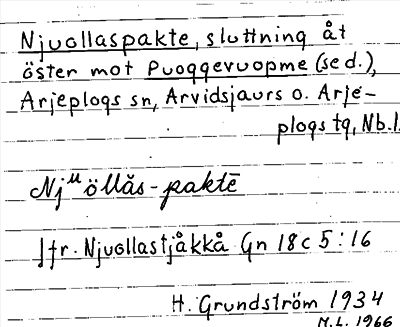 Njuollaspakte, sluttning åt
öster mot Puoggevuopme (se d.),
Arjeplogs sn, Arvidsjaurs o. Arje-
plogs tg, Nb.l.
Njᵘöllås-paktē
Jfr. Njuollastjåkkå Gn 18c 5:16
H. Grundström 1934
M.L. 1966